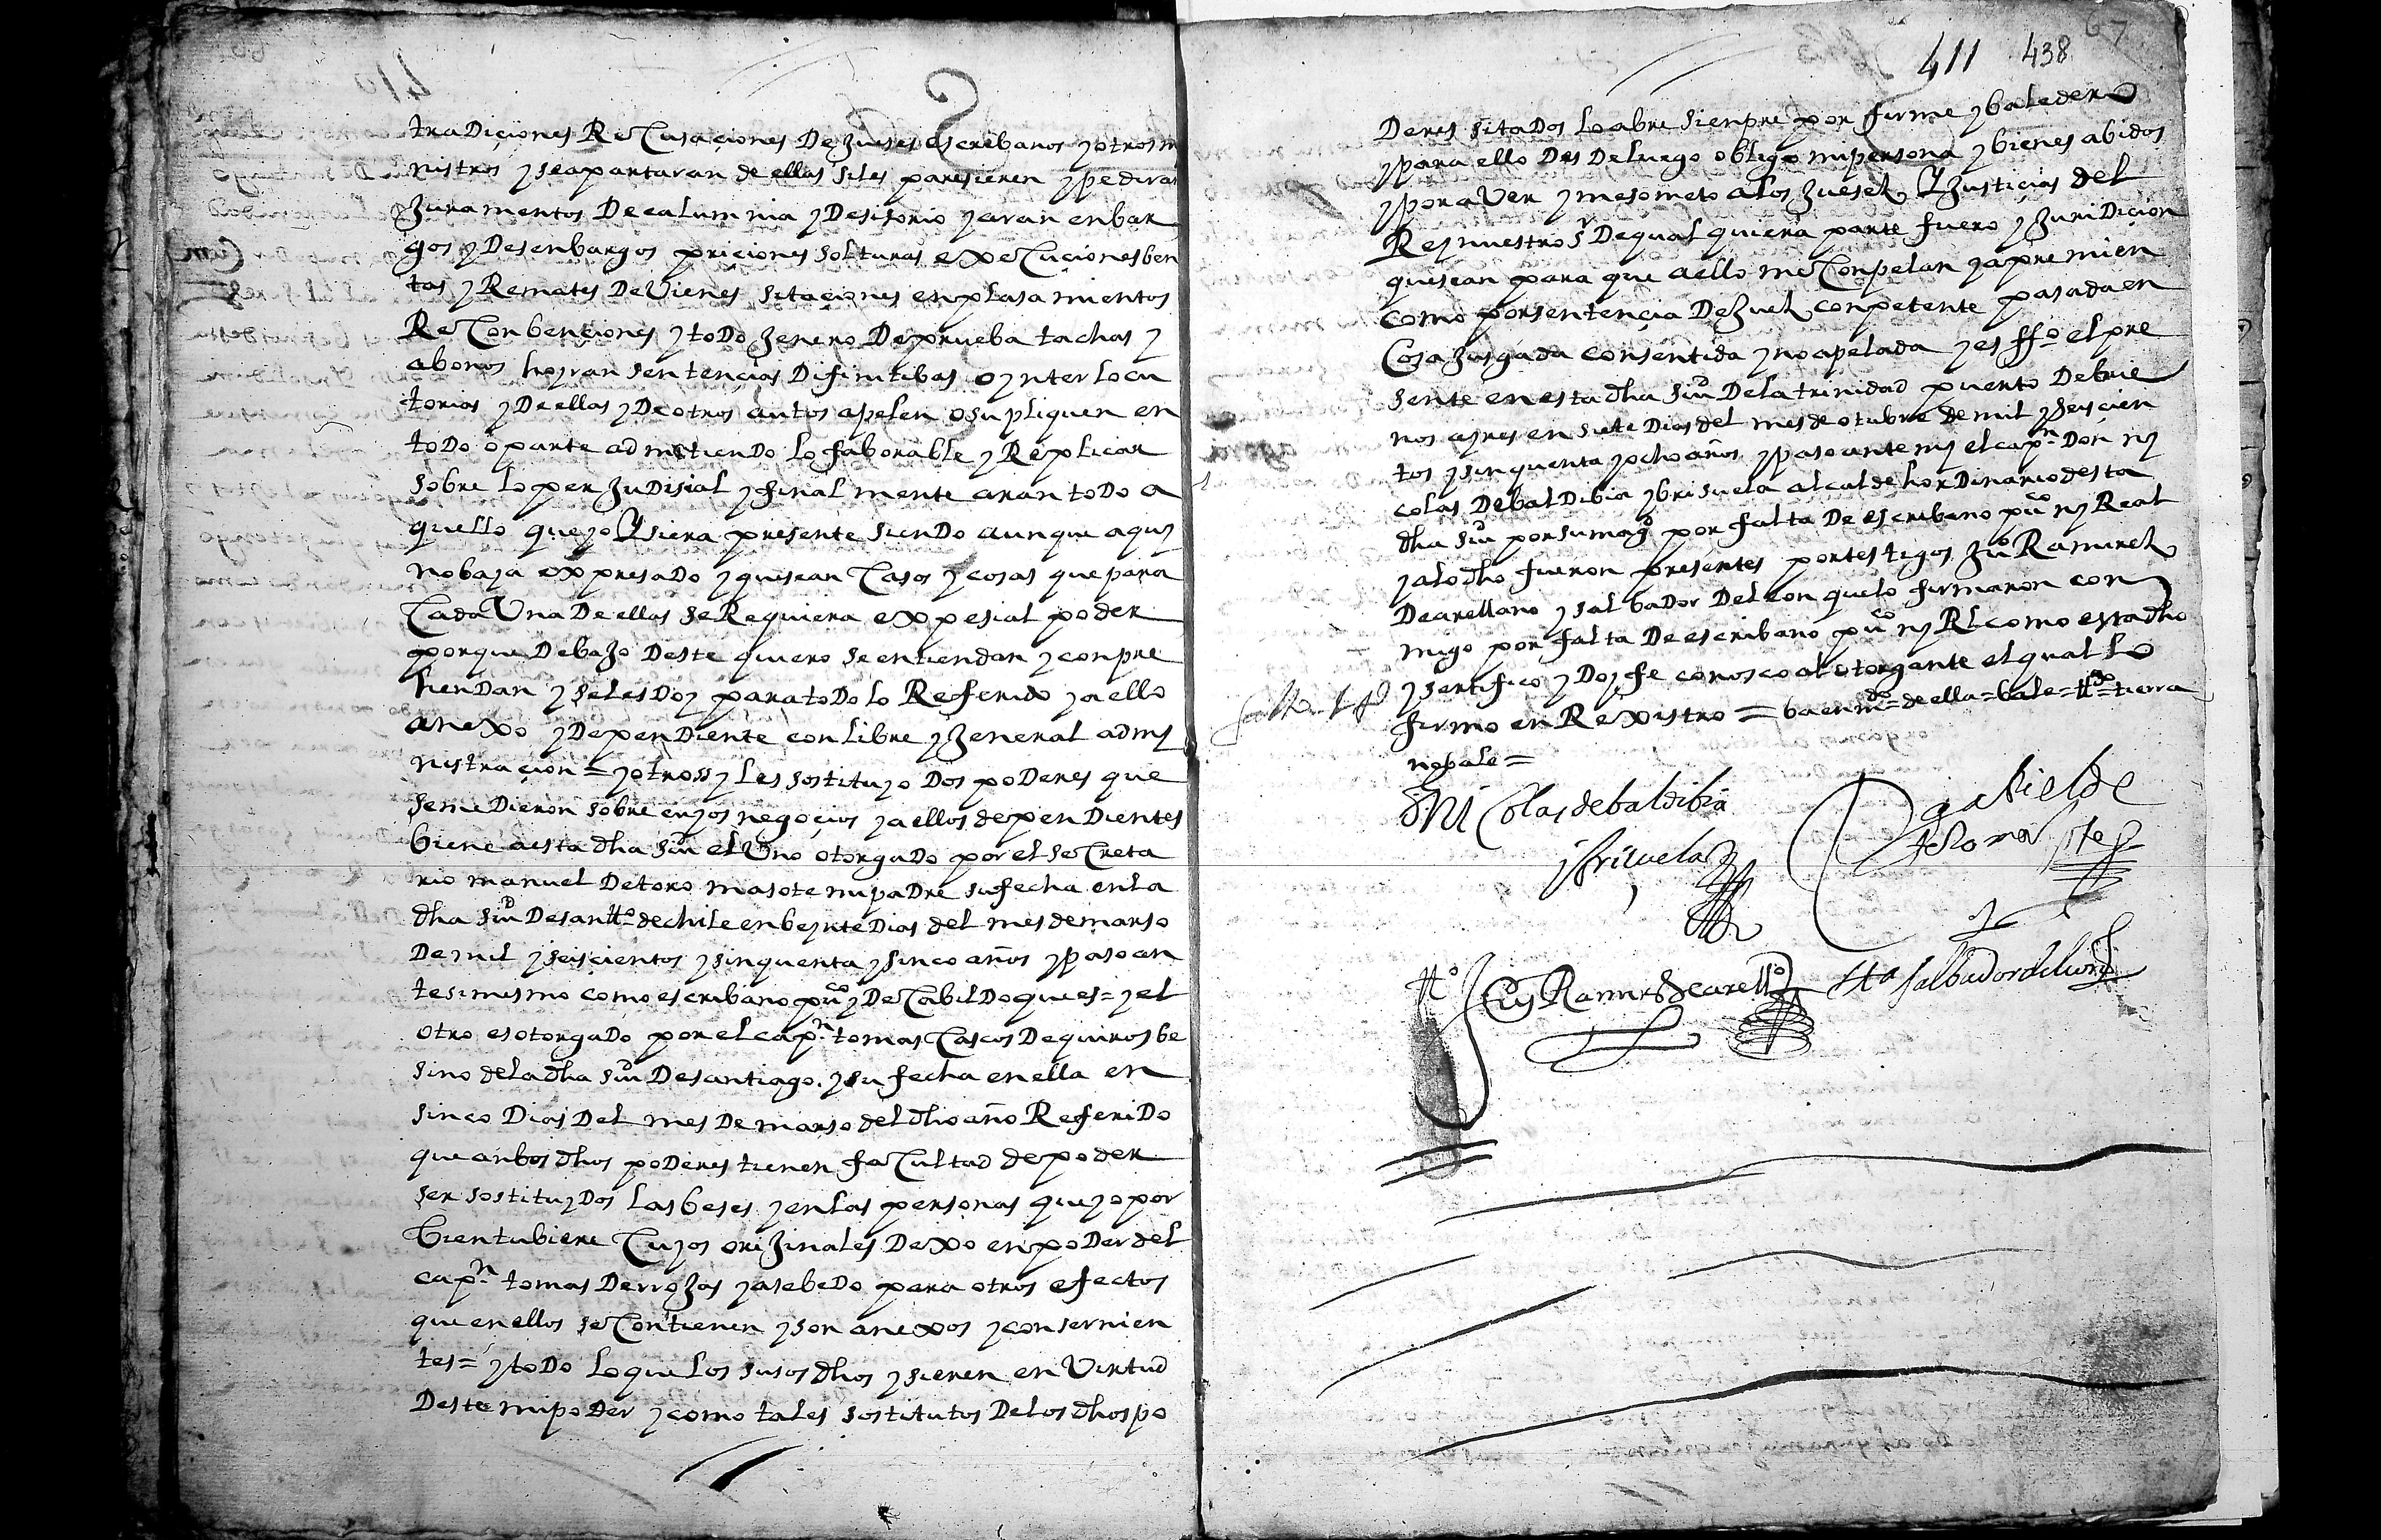 tradiçiones Recusaçiones De Jueses escribanos y otros m
nistros y se apartaran de ellas si les paresieren y pediran
Juramentos De calumnia y Desisorio y aran enbar
gos y Desenbargos priçiones solturas execuçiones ben
tas y Remates De Vienes sitaçiones enplasamientos
Reconbençiones y toDo Jenero De prueba tachas y
abonos hoyran sentençias Difinitibas o ynterlocu
torias y De ellas y De otros autos apelen o supliquen en
toDo o parte admitiendo lo faborable y Replicar
sobre lo perJudisial y finalmente aran todo a
quello que yo ysiera presente sienDo aunque aquy
no baya expresaDo y que sean Casos y cosas que para
Cada Una De ellas se Requiera expesial poder
porque Debajo Deste quiero se entiendan y conpre
hendan y se les Doy para toDo lo Referido y a ello
anexo y DepenDiente con libre y Jeneral admy
nistraçion = y otrossy les sostituyo Dos poDeres que
se me Dieron sobre cuyos negoçios y a ellos depenDientes
biene a esta dha siud el Uno otorgaDo por el secreta
rio manuel De toro masote mi paDre su fecha en la
dha siud De santto de chile en beynte Dias del mes de marso
De mil y seisçientos y sinquenta y sinco años y paso an
te si mesmo como escribano puco y De CabilDo que es = y el
otro es otorgaDo por el capn tomas Cascos De quiros be
sino de la dha siud De santiago y su fecha en ella en
sinco Dias Del mes De marso del dho año ReferiDo
que anbos dhos poDeres tienen faCultad de poder
ser sostituyDos las beses y en las personas que yo por
bien tubiere Cuyos oriJinales Dexo en poDer del
capn tomas De rroJas y asebeDo para otros efectos
que en ellos se Contienen y son anexos y consernien
tes = y toDo lo que los susos dhos ysieren en Virtud
Deste mi poDer y como tales sostitutos De los dhos po
67
411 438
Deres sitaDos lo abre sienpre por firme y baledero
y para ello Des De luego obligo mi persona y bienes abidos
y por aVer y me someto a los Jueses y Justiçias del
Rey nuestro sr De qualquiera parte fuero y JuriDiçion
que sean para que a ello me Conpelan y apremien
como por sentençia De Juez conpetente pasada en
Cosa Jusgada consentida y no apelada y es ffo el pre
sente en esta dha siud De la trinidad puerto De bue
nos ayres en siete Dias del mes de otubre de mil y seisçien
tos y sinquenta y ocho años y paso ante my el capn Don ny
colas De balDibia y brisuela alcalde horDinario desta
dha siud por su magd por falta De escribano puco ny Real
y a lo dho fueron presentes por testigos Juo Ramires
De arellano y salbaDor Del eon que lo firmaron con
migo por falta De escribano puco ny Rl como esta dho
y sertifico y Doy fe conosco al otorgante el qual lo
firmo en Rexistro = ba enmdo = de ella = bale = ttdo = tierra
no bale =
Dn Nicolas de baldibia
y brizuela
gabriel de
toro masote
tto Luis Ramirs de arello
tto salbador de leon